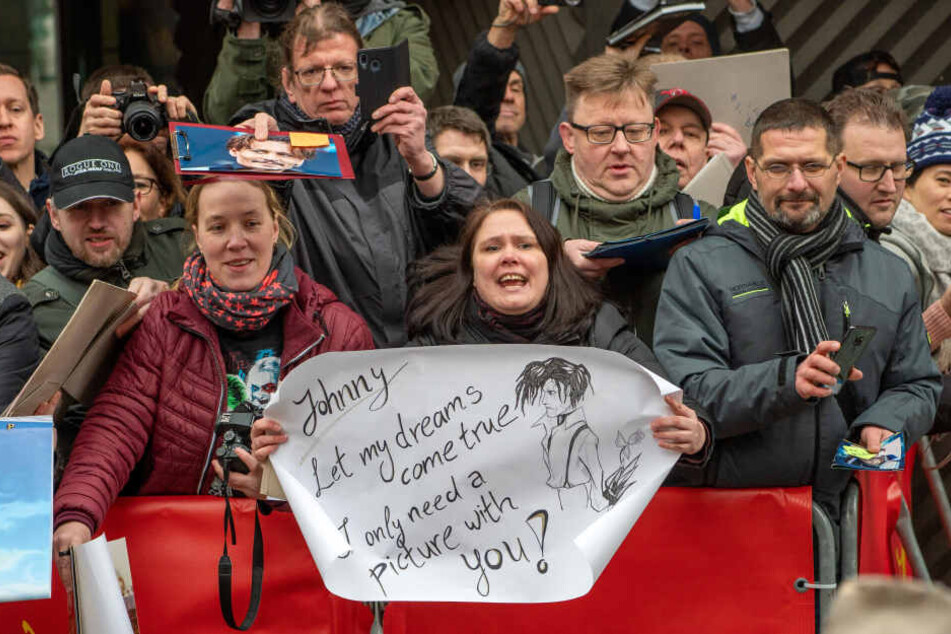 ROGUE ONE
Johnny
Let my dreams
come true
I only need a
picture with
you!